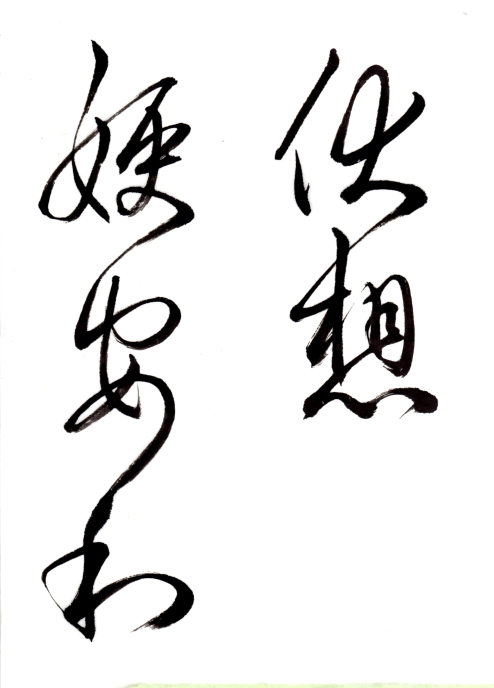 伏想
嫂安和